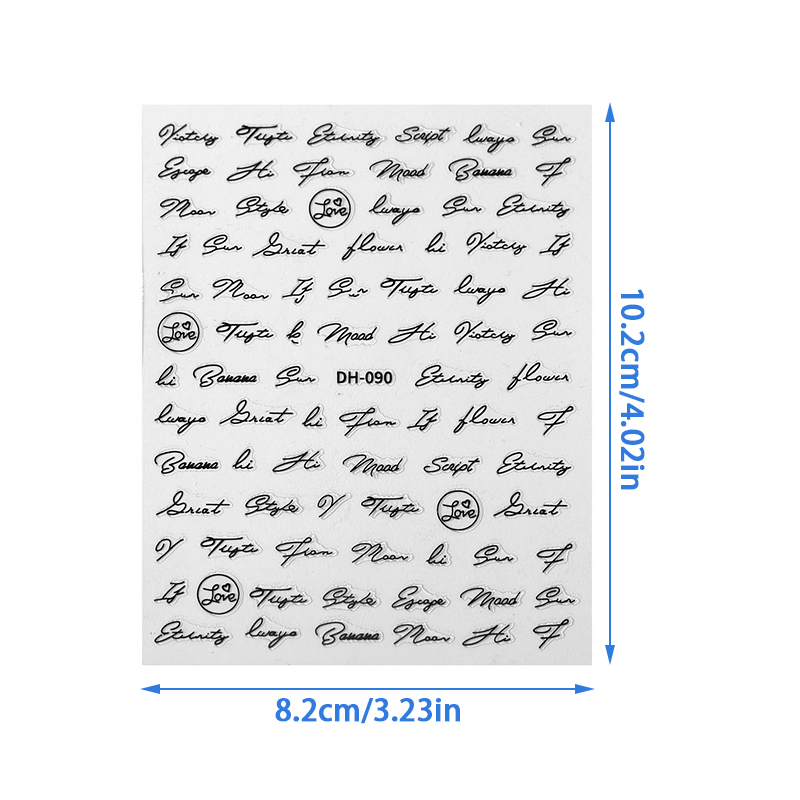 Victory Tuyti Eternity Script lways Sun
Escape Hi Fian Mood Banana F
Moon Style Love lways Sun Eternity
If Sun Great flower hi Victory If
Sun Moon If Sun Tuyti lways Hi
Love Tuyti k Mood Hi Victory Sun
hi Banana Sun DH-090 Eternity flower
lways Great hi Fian If flower F
Banana hi Hi Mood Script Eternity
Great Style Y Tuyti Love Great
Y Tuyti Fian Moon hi Sun F
If Love Tuyti Style Escape Mood Sun
Eternity lways Banana Moon Hi F
10.2cm/4.02in
8.2cm/3.23in